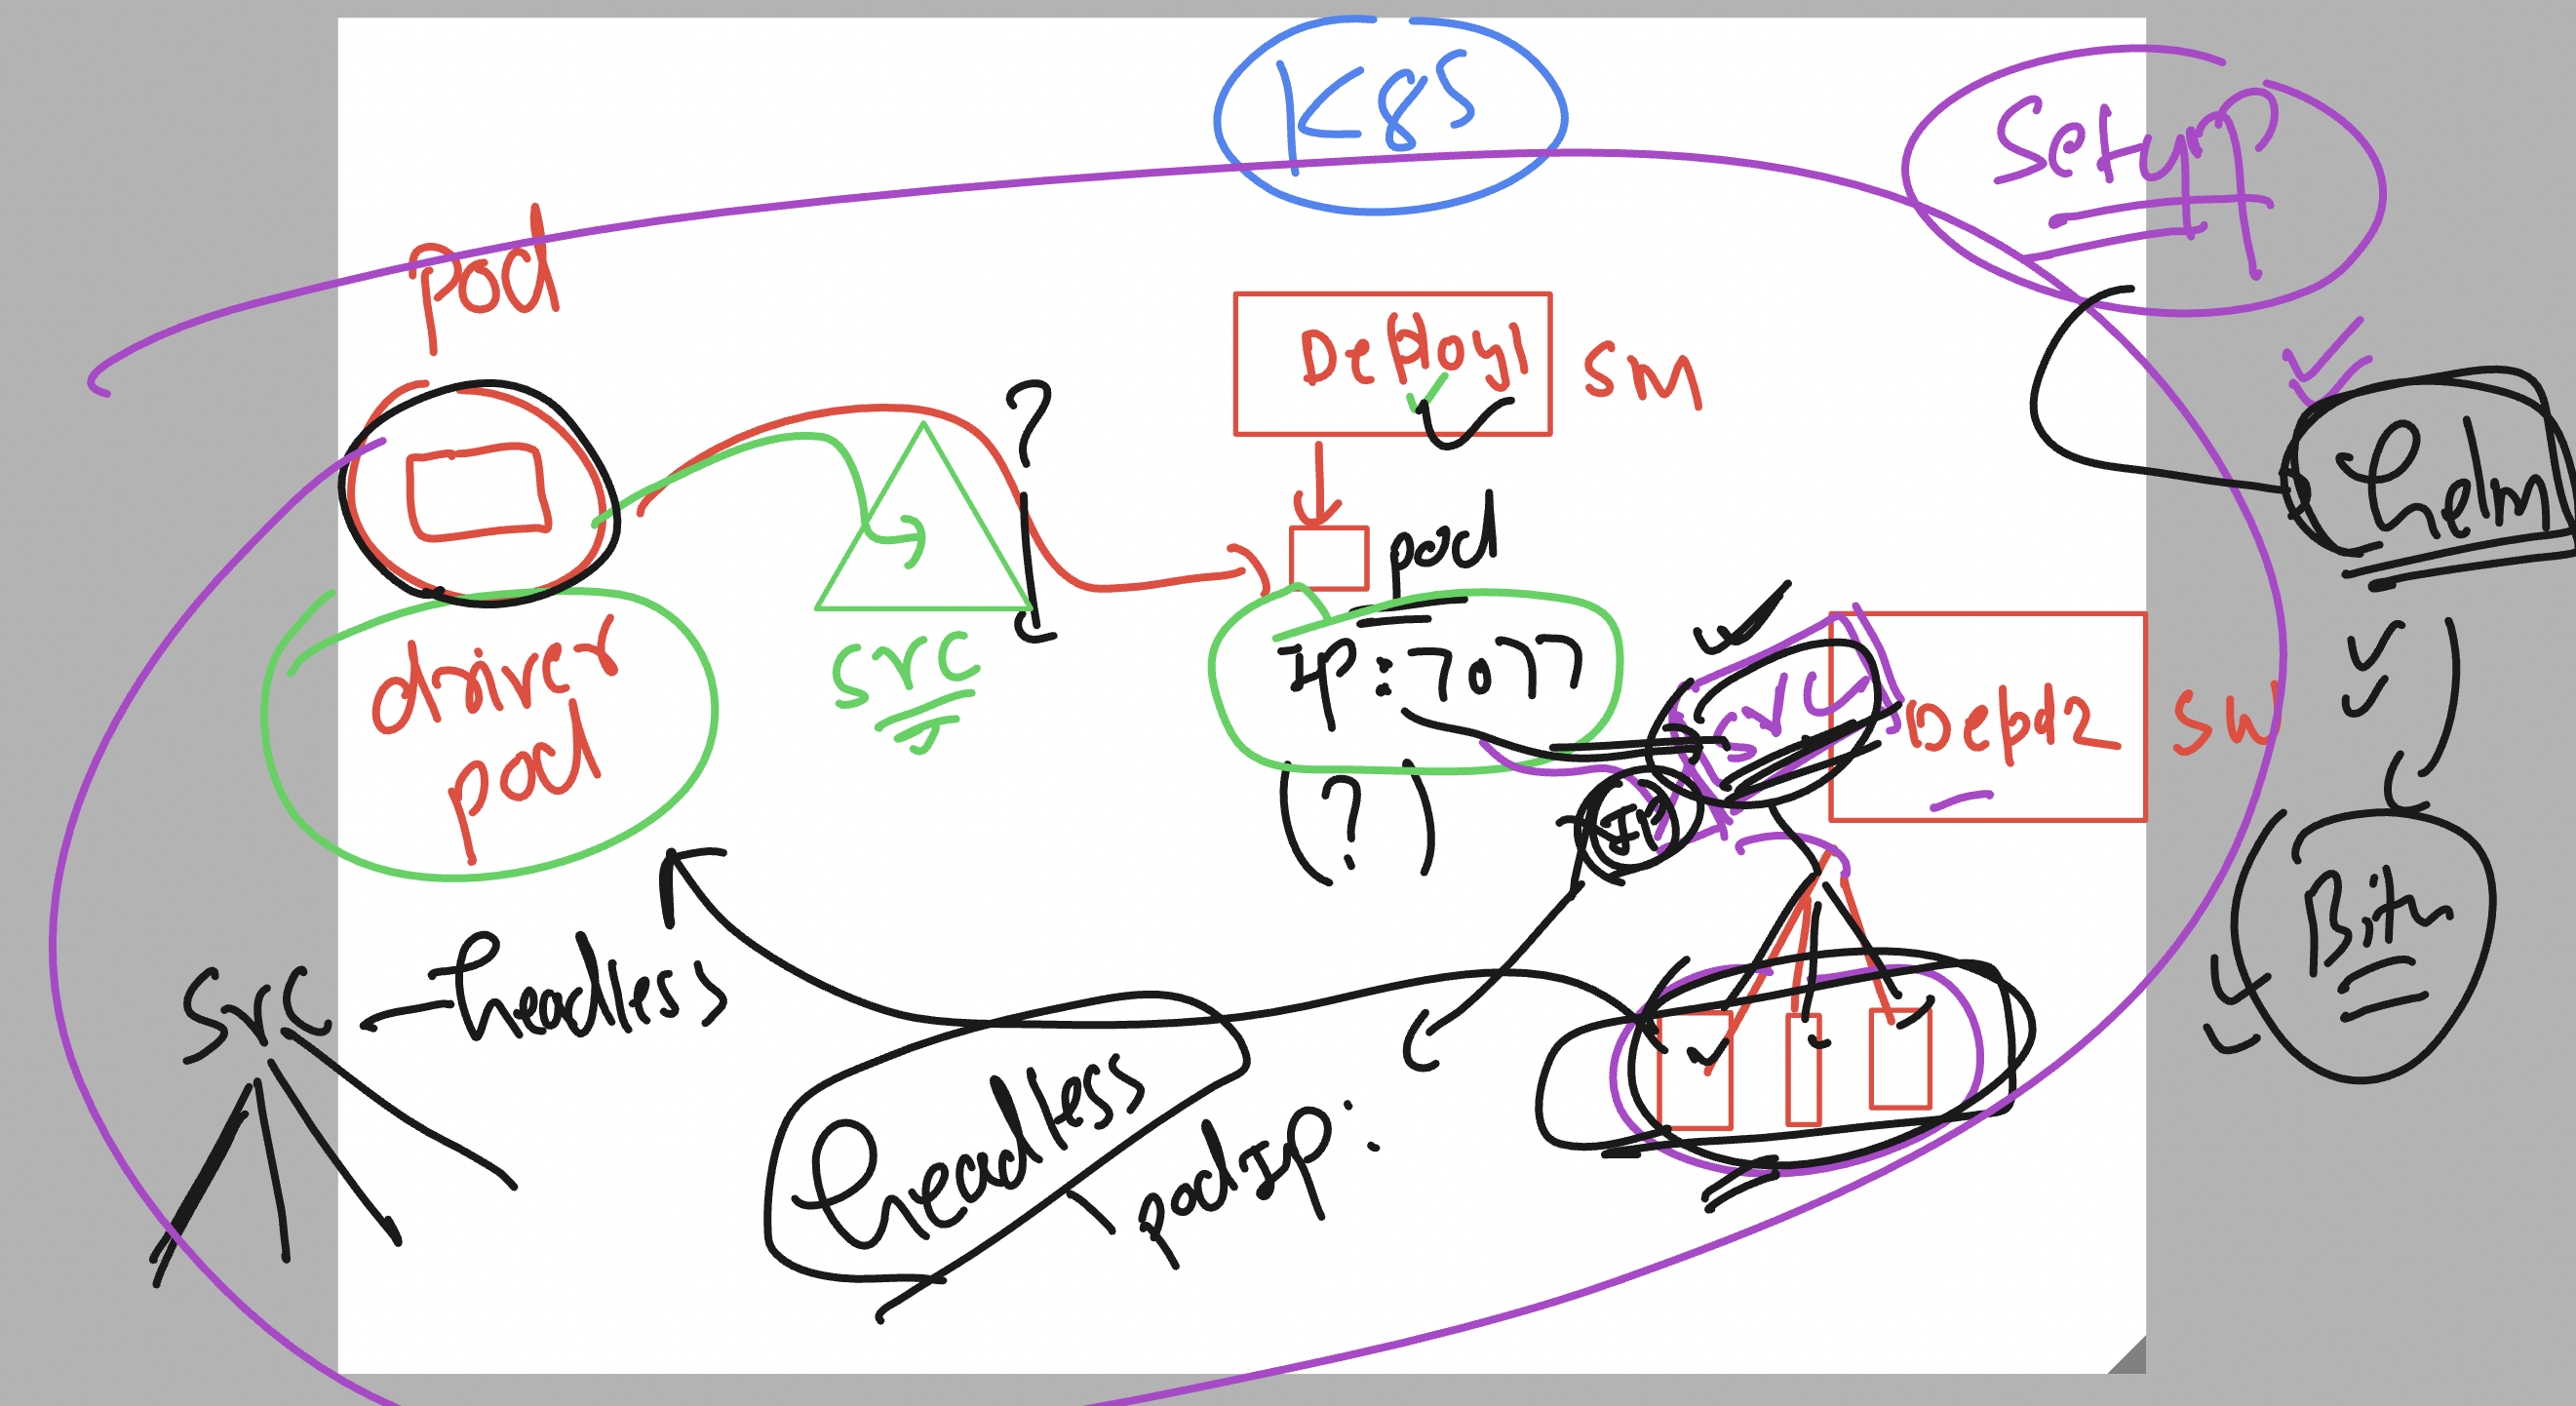 K8S
Setup
pod
Deploy1
SM
?
helm
pod
driver
pod
svc
IP:7077
svc
Depd2
SW
(?)
IP
Bitn
svc
headless
headless
podIP: